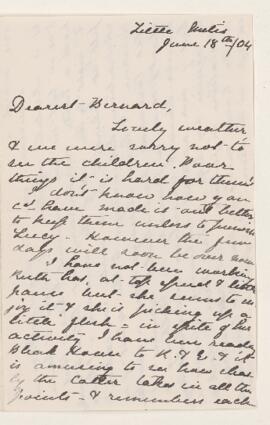 Little Metis
June 18th/04
Dearest Bernard,
Lovely weather
& we were sorry not to
see the children. Poor
things it is hard for them
I don't know how you
cd have made it out better
to keep them unless to
Lucy. However the few
days will soon be over now
I have not been working
Ruth has, at top speed &
but she seems to en
joy it & she is picking up a
little flesh = in spite of her
activity I have been reading
Bleak House to K. & E. & it
is amusing to see how clear
ly the latter takes in all the
points & remembers each